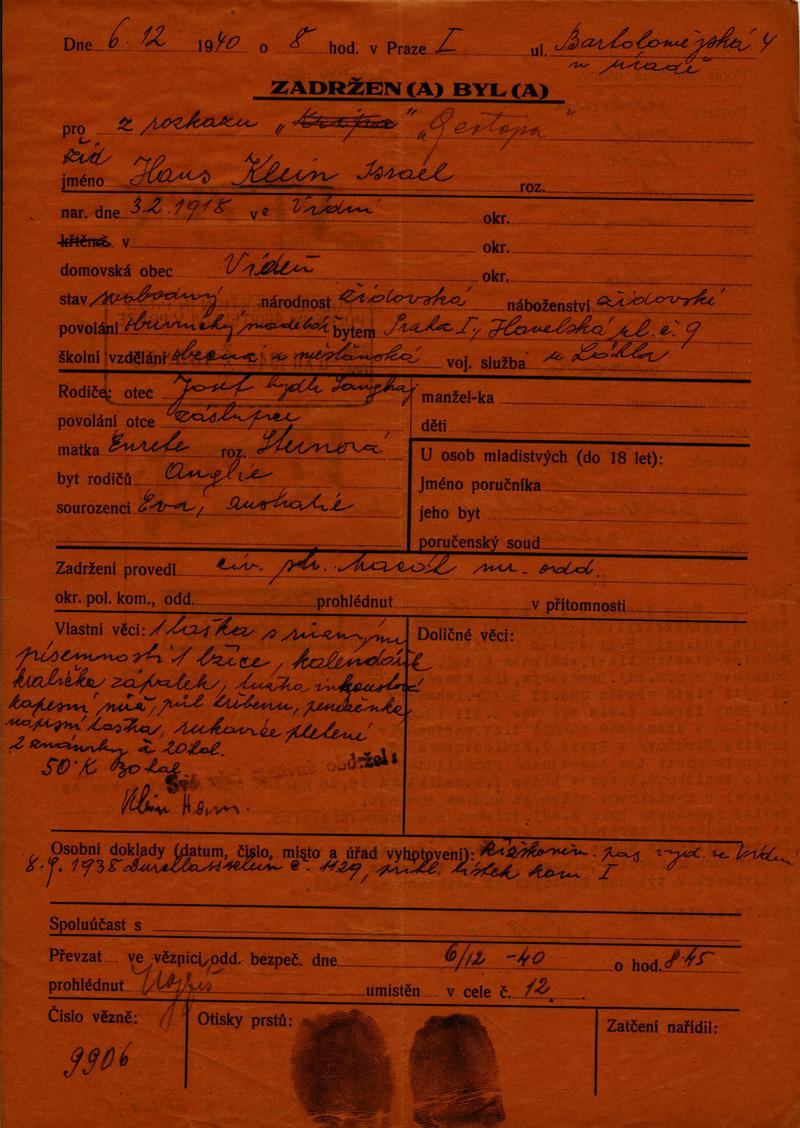 Dne 6. 12 1940 o 8 hod. v Praze I ul. Bartolomějská 4
v úřadě
ZADRŽEN(A) BYL(A)
pro z rozkazu „Gestapa“
žid
jméno Hans Klein Israel roz.
nar. dne 3. 2. 1918 ve Vídni okr.
křtěná v okr.
domovská obec Vídeň okr.
stav svobodný národnost židovská náboženství židovské
povolání obuvnický bytem Praha I, Havelská ul. č. 9
školní vzdělání obecná a měšťanská voj. služba u
Rodiče: otec Josef manžel-ka
povolání otce zástupce děti
matka roz. Steinová U osob mladistvých (do 18 let):
byt rodičů Anglie Jméno poručníka
sourozenci Eva, Australie jeho byt
poručenský soud
Zadržení provedl civ. str. odd.
okr. pol. kom., odd. prohlédnut v přítomnosti
Vlastní věci: 1 taška s různými Doličné věci:
písemnosti 1 lžíce, kalendářík
krabička zápalek, tužka inkoustová
kapesní nůž, půl hřebenu, peněženka
náprsní taška, rukavice pletené
2 známky à 20 hal.
50 K 30 hal
obdržel:
Klein Hans.
Osobní doklady (datum, číslo, místo a úřad vyhotovení): pas vyd. ve Vídni
8. 9. 1938 č. 1129, přihl. lístek kom. I
Spoluúčast s
Převzat ve věznici odd. bezpeč. dne 6/12 -40 o hod. 8.45
prohlédnut umístěn v cele č. 12.
Číslo vězně: Otisky prstů: Zatčení nařídil:
9906